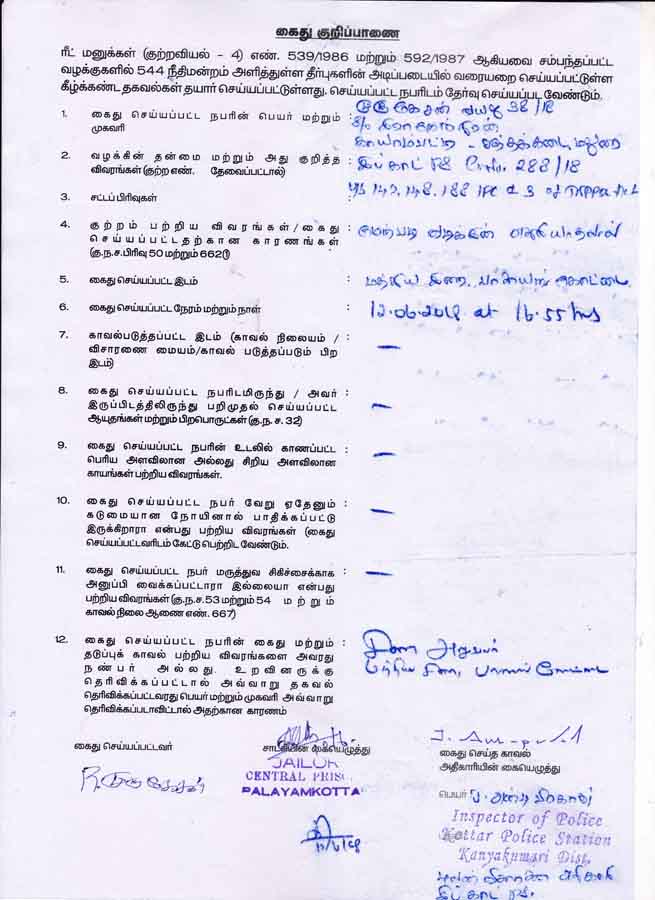 கைது குறிப்பாணை
ரீட் மனுக்கள் (குற்றவியல் - 4) எண். 539/1986 மற்றும் 592/1987 ஆகியவை சம்பந்தப்பட்ட
வழக்குகளில் 544 நீதிமன்றம் அளித்துள்ள தீர்புகளின் அடிப்படையில் வரையறை செய்யப்பட்டுள்ள
கீழ்க்கண்ட தகவல்கள் தயார் செய்யப்பட்டுள்ளது. செய்யப்பட்ட நபரிடம் தேர்வு செய்யப்பட வேண்டும்.
1. கைது செய்யப்பட்ட நபரின் பெயர் மற்றும் : முருகேசன் வயது 38/18
முகவரி S/o
மதுரை
2. வழக்கின் தன்மை மற்றும் அது குறித்த :
விவரங்கள் (குற்ற எண். தேவைப்பட்டால்) இப்காட் PS Cr.No. 288/18
3. சட்டப்பிரிவுகள் : u/s 147, 148, 188 IPC & 3 of TNPPD Act
4. குற்றம் பற்றிய விவரங்கள் / கைது : மேற்படி வழக்கின்
செய்யப்பட்டதற்கான காரணங்கள்
(கு.ந.ச.பிரிவு 50 மற்றும் 662())
5. கைது செய்யப்பட்ட இடம் : மத்திய சிறை, பாளையங்கோட்டை
6. கைது செய்யப்பட்ட நேரம் மற்றும் நாள் : 12.06.2018 at 16.55 hrs
7. காவல்படுத்தப்பட்ட இடம் (காவல் நிலையம் / : —
விசாரணை மையம்/காவல் படுத்தப்படும் பிற
இடம்)
8. கைது செய்யப்பட்ட நபரிடமிருந்து / அவர் : —
இருப்பிடத்திலிருந்து பறிமுதல் செய்யப்பட்ட
ஆயுதங்கள் மற்றும் பிறபொருட்கள் (கு.ந. ச. 32)
9. கைது செய்யப்பட்ட நபரின் உடலில் காணப்பட்ட : —
பெரிய அளவிலான அல்லது சிறிய அளவிலான
காயங்கள் பற்றிய விவரங்கள்.
10. கைது செய்யப்பட்ட நபர் வேறு ஏதேனும் : —
கடுமையான நோயினால் பாதிக்கப்பட்டு
இருக்கிறாரா என்பது பற்றிய விவரங்கள் (கைது
செய்யப்பட்டவரிடம் கேட்டு பெற்றிட வேண்டும்.
11. கைது செய்யப்பட்ட நபர் மருத்துவ சிகிச்சைக்காக : —
அனுப்பி வைக்கப்பட்டாரா இல்லையா என்பது
பற்றிய விவரங்கள் (கு.ந.ச.53 மற்றும் 54 மற்றும்
காவல் நிலை ஆணை எண். 667)
12. கைது செய்யப்பட்ட நபரின் கைது மற்றும் : சிறை அலுவலர்
தடுப்புக் காவல் பற்றிய விவரங்களை அவரது மத்திய சிறை, பாளையங்கோட்டை
நண்பர் அல்லது. உறவினருக்கு
தெரிவிக்கப்பட்டால் அவ்வாறு தகவல்
தெரிவிக்கப்பட்டவரது பெயர் மற்றும் முகவரி அவ்வாறு
தெரிவிக்கப்படாவிட்டால் அதற்கான காரணம்
கைது செய்யப்பட்டவர் சாட்சியின் கையெழுத்து கைது செய்த காவல்
அதிகாரியின் கையெழுத்து
JAILOR
CENTRAL PRISO
PALAYAMKOTTA
R. முருகேசன்
பெயர்
Inspector of Police
Kottar Police Station
Kanyakumari Dist.
இப்காட் PS.